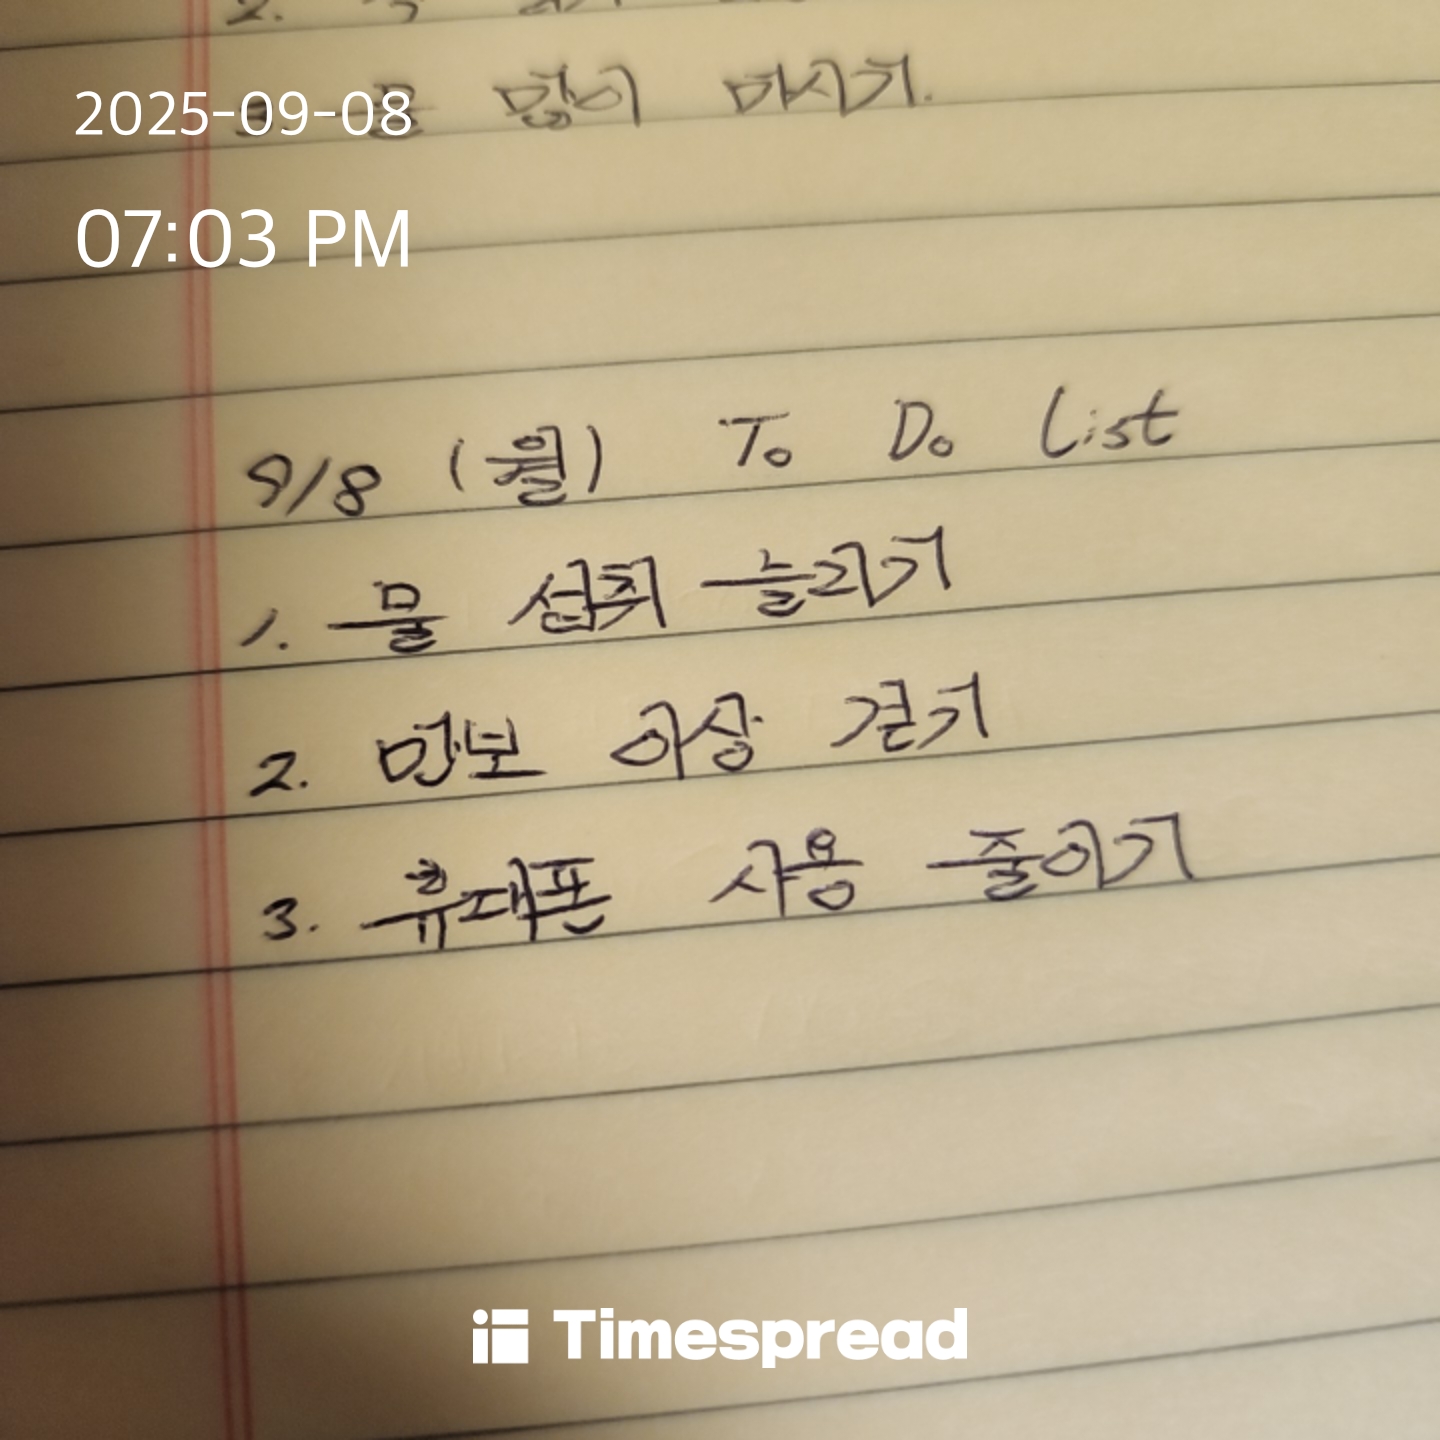 2.
2025-09-08
많이 마시기.
07:03 PM
9/8 (월) To Do List
1. 물 섭취 늘리기
2. 만보 이상 걷기
3. 휴대폰 사용 줄이기
Timespread